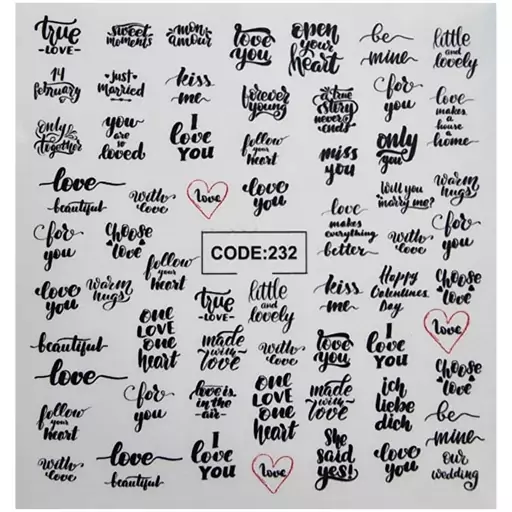 true
-LOVE-
sweet
moments
mon
amour
love
you
open
your
heart
be
mine
little
and
lovely
14
february
just
married
kiss
me
forever
young
a true
story
never
ends
for
you
love
makes a
house a
home
only
together
you
are so
loved
I
love
YOU
follow
your
heart
miss
you
only
you
love
beautiful
with
love
love
love
you
love
makes
everything
better
Will you
marry me?
warm
hugs
for
you
choose
love
follow
your
heart
CODE:232
with
love
love
you
warm
hugs
true
-LOVE-
little
and
lovely
kiss
me
Happy
Valentines
Day
choose
love
one
LOVE
one
heart
made
with
love
with
love
love
you
I
love
YOU
love
beautiful
love
for
you
love is
in the
-air-
one
LOVE
one
heart
made
with
love
ich
liebe
dich
choose
love
be
mine
follow
your
heart
with
love
love
beautiful
I
love
YOU
love
She
said
yes!
love
you
our
wedding